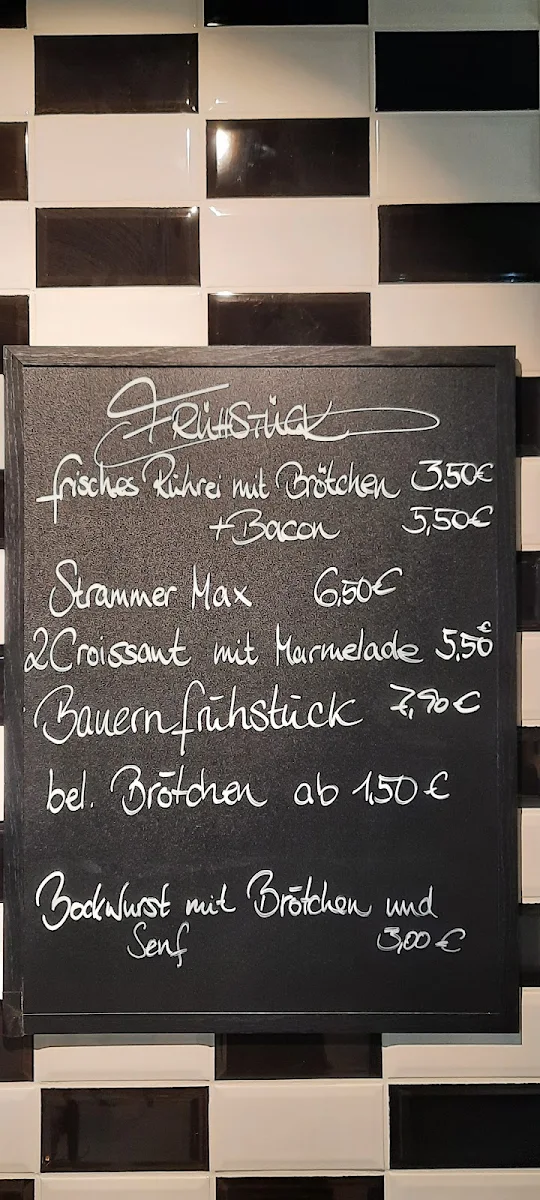 FRÜHSTÜCK
frisches Rührei mit Brötchen 3,50€
+Bacon 5,50€
Strammer Max 6,50€
2 Croissant mit Marmelade 5,50€
Bauernfrühstück 7,90€
bel. Brötchen ab 1,50 €
Bockwurst mit Brötchen und
Senf 3,00 €